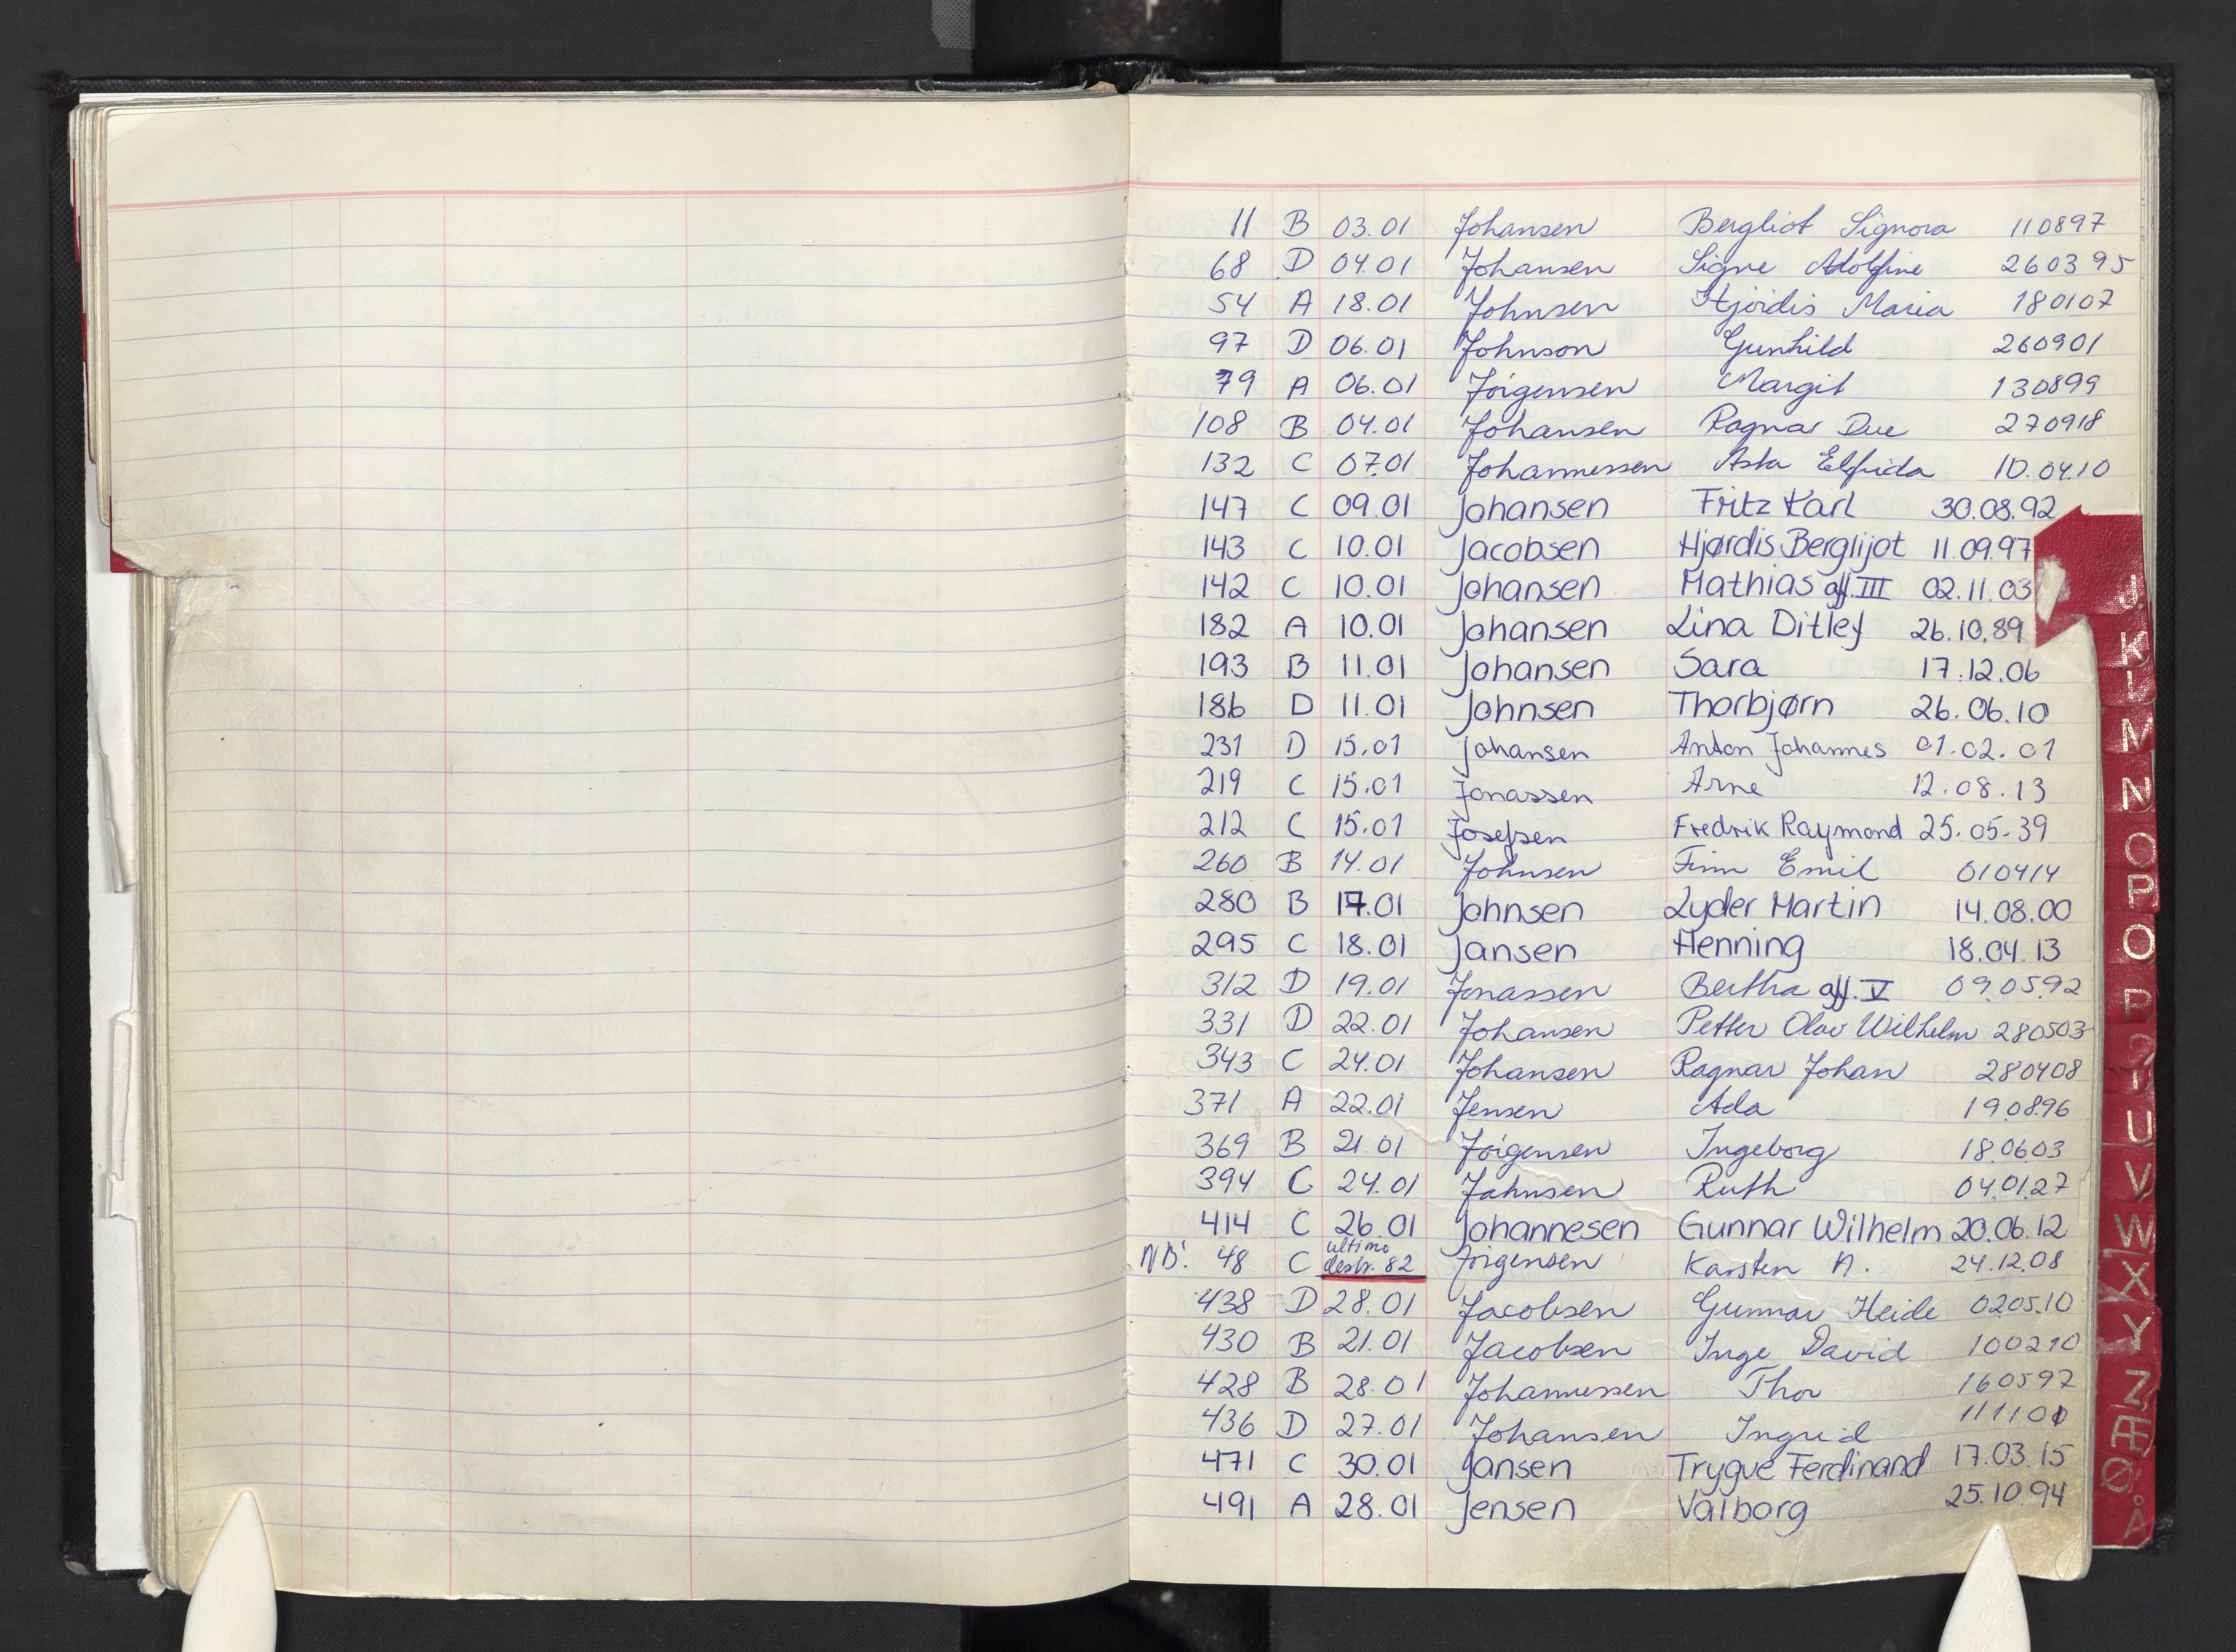 11 B 03.01 Johansen Bergliot Signora 110897
68 D 04.01 Johansen Signe Adolfine 260395
54 A 18.01 Johnsen Hjördis Maria 180107
97 D 06.01 Johnson Gunhild 260901
79 A 06.01 Jörgensen Margit 130899
108 B 04.01 Johansen Ragnar Due 270918
132 C 07.01 Johannessen Asta Elfrida 10.04.10
147 C 09.01 Johansen Fritz Karl 30.08.92
143 C 10.01 Jacobsen Hjørdis Berglijot 11.09.97
142 C 10.01 Johansen Mathias aff. III 02.11.03
182 A 10.01 Johansen Lina Ditlef 26.10.89
193 B 11.01 Johansen Sara 17.12.06
186 D 11.01 Johnsen Thorbjørn 26.06.10
231 D 15.01 Johansen Anton Johannes 01.02.01
219 C 15.01 Jonassen Arne 12.08.13
212 C 15.01 Josefsen Fredrik Raymond 25.05-39
260 B 14.01 Johnsen Finn Emil 010414
280 B 17.01 Johnsen Lyder Martin 14.08.00
295 C 18.01 Jansen Henning 18.04.13
312 D 19.01 Jonassen Bertha aff. V 09.05.92
331 D 22.01 Johansen Petter Olav Wilhelm 280503
343 C 24.01 Johansen Ragnar Johan 280408
371 A 22.01 Jensen Ada 190896
369 B 21.01 Jörgensen Ingeborg 18.06.03
394 C 24.01 Jahnsen Ruth 04.01.27
414 C 26.01 Johannesen Gunnar Wilhelm 20.06.12
NB! 48 C ultimo destr. 82 Jörgensen Karsten A. 24.12.08
438 D 28.01 Jacobsen Gunnar Heide 02.05.10
430 B 21.01 Jacobsen Inge David 100210
428 B 28.01 Johannessen Thor 160597
436 D 27.01 Johansen Ingrid 111101
471 C 30.01 Jansen Trygve Ferdinand 17.03.15
491 A 28.01 Jensen Valborg 25.10.94
J
K
L
M
N
O
P
Q
R
U
V
W
X
Y
Z
Æ
Ø
Å